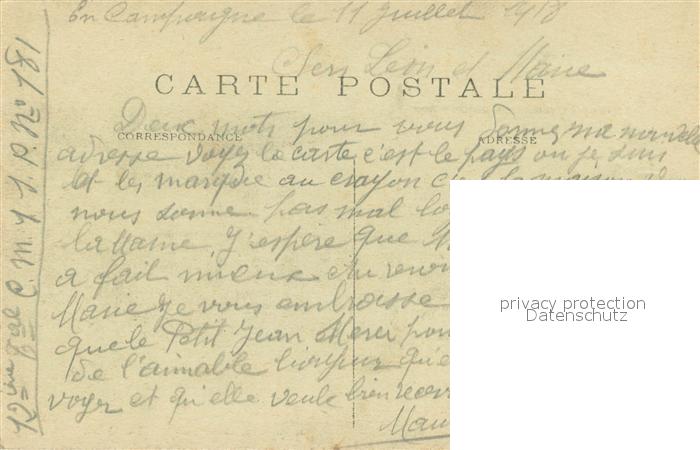 En Campagne le 11 Juillet 1918
Léon et Marie
CARTE POSTALE
CORRESPONDANCE
ADRESSE
Deux mots pour vous donner ma nouvelle
adresse voyez la carte c'est le pays ou je suis
et les marquée au crayon la maison
nous donne pas mal
la Marne. J'espère que
a fait mieux Au revoir
Marie je vous embrasse
que le Petit Jean Merci pour
de l'aimable bonjour qu'e
voyer et qu'elle veule bien recev
Mau
privacy protection
Datenschutz